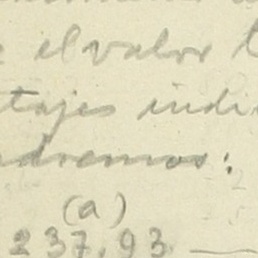 el valor
tajes indi
dremos:
(a)
237,93